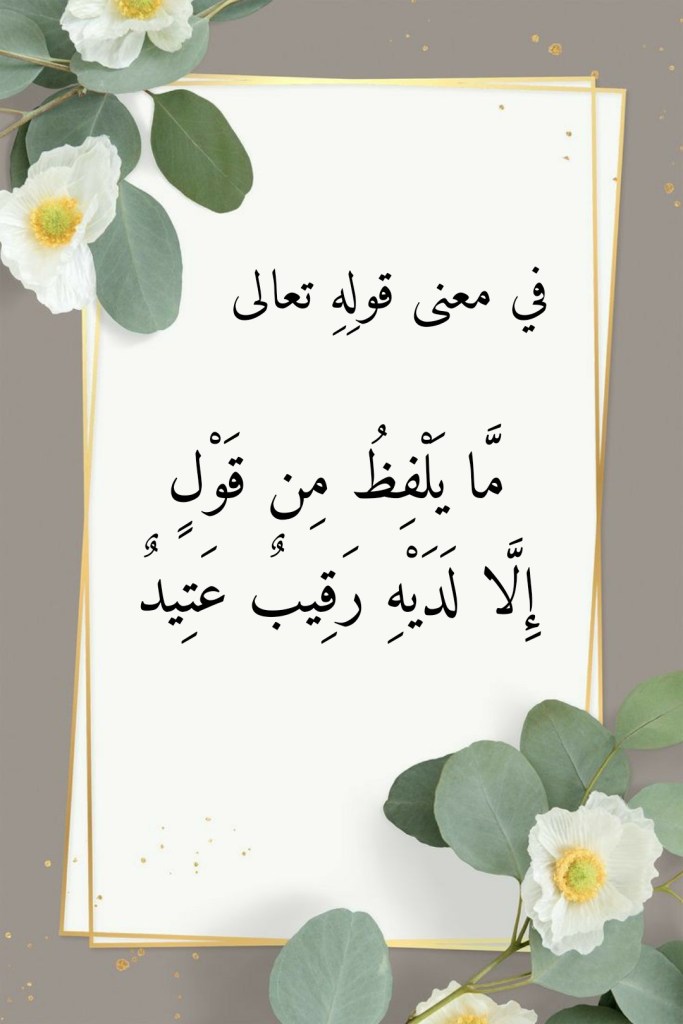 في معنى قولِهِ تعالى
مَّا يَلْفِظُ مِن قَوْلٍ
إِلَّا لَدَيْهِ رَقِيبٌ عَتِيدٌ